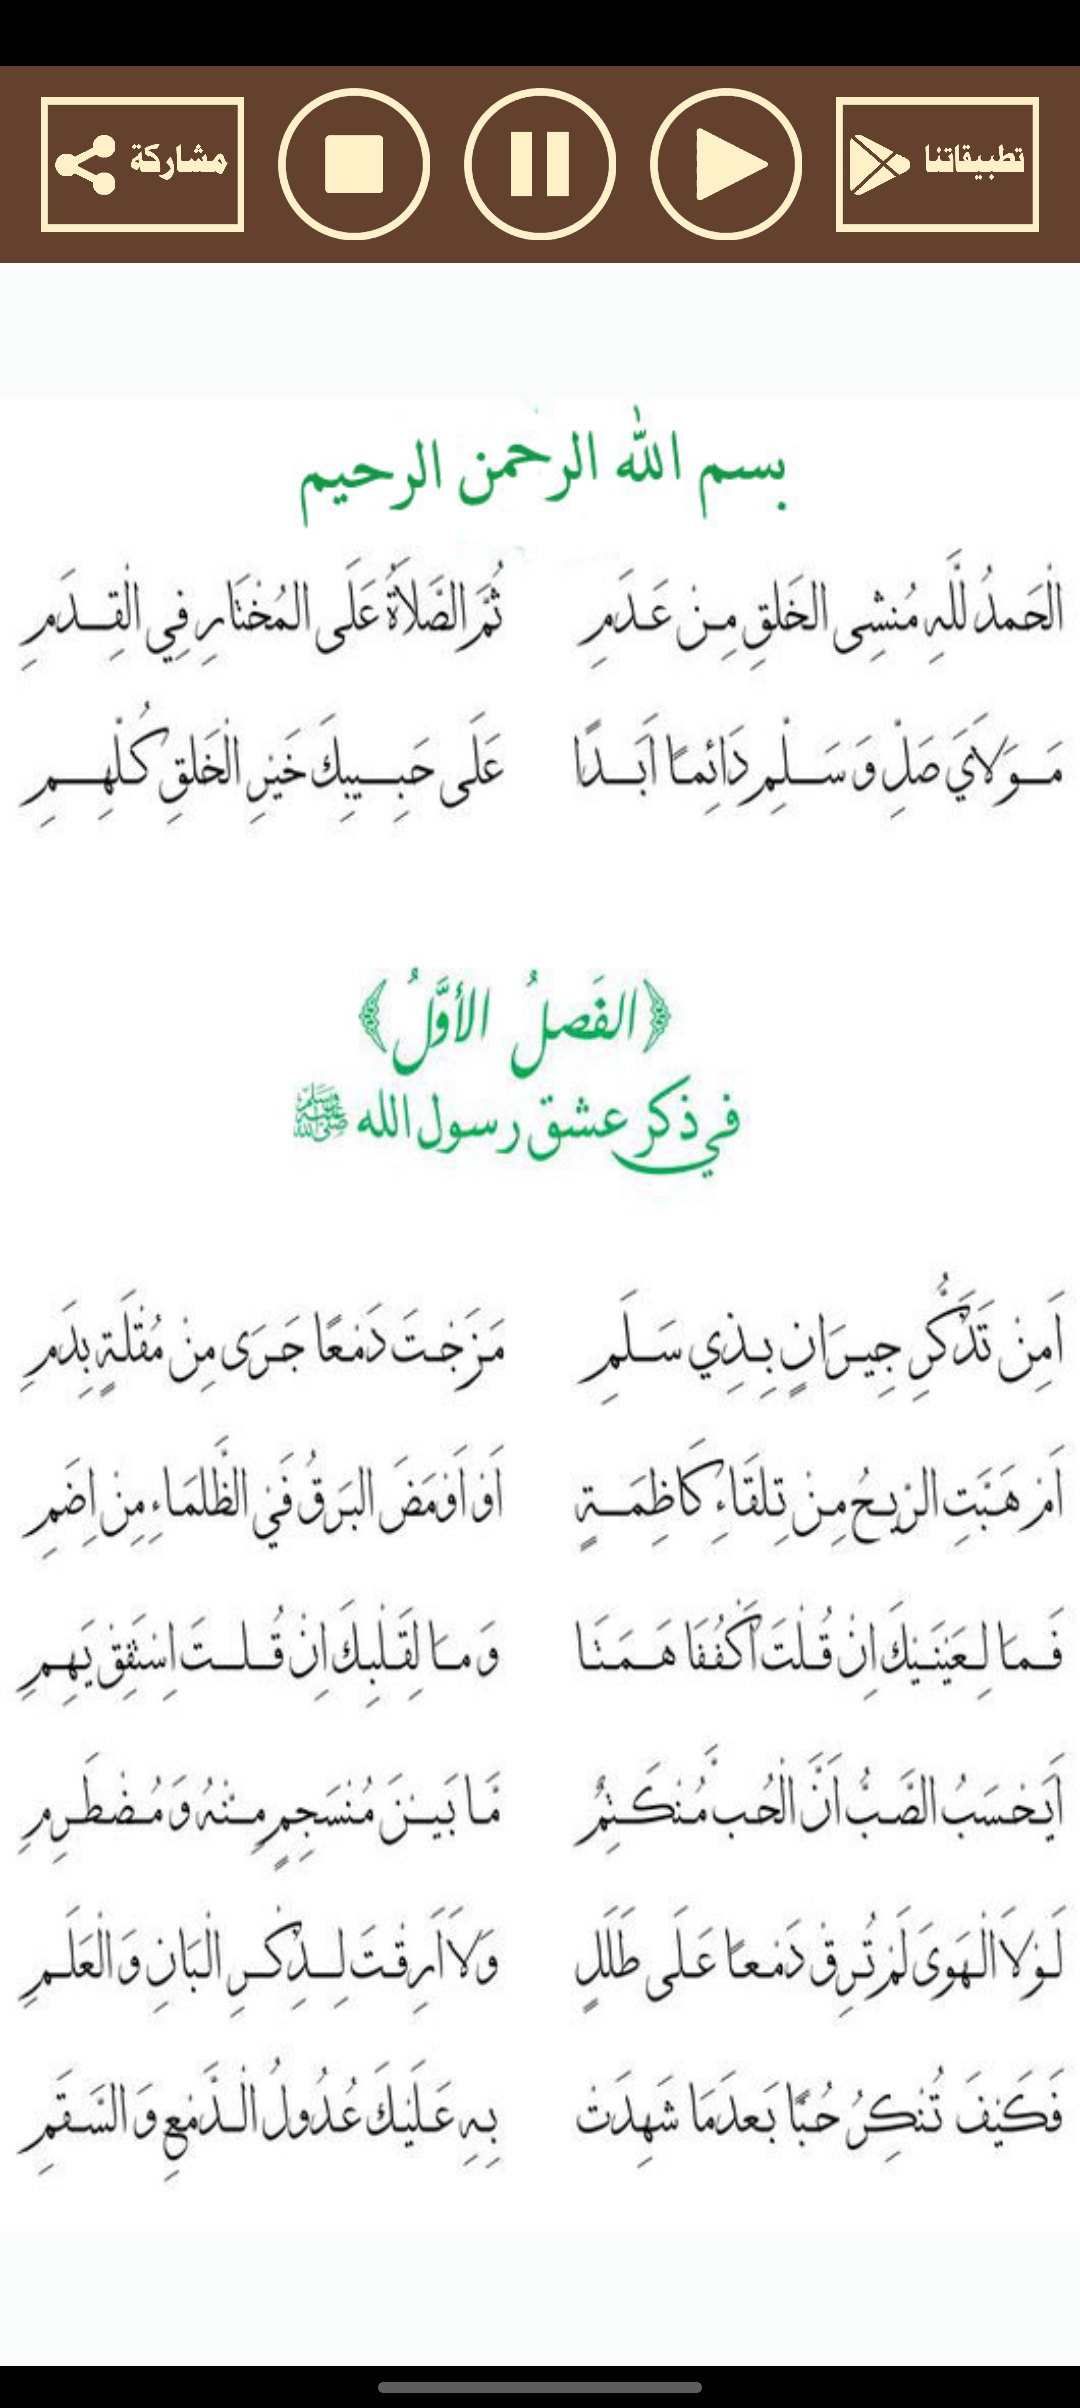 مشاركة تطبيقاتنا
بسم الله الرحمن الرحيم
اَلْحَمدُ لِلّٰهِ مُنشِى الخَلقِ مِنْ عَدَمِ ثُمَّ الصَّلَاةُ عَلَى المُخْتَارِ فِي الْقِدَمِ
مَولَايَ صَلِّ وَسَلِّم دَائِمًا اَبَدًا عَلَى حَبِيبِكَ خَيْرِ الْخَلقِ كُلِّهِمِ
﴿الفَصلُ الأوَّلُ﴾
في ذكر عشق رسول الله ﷺ
اَمِنْ تَذَكُّرِ جِيرَانٍ بِذِي سَلَمِ مَزَجْتَ دَمْعًا جَرَى مِنْ مُقْلَةٍ بِدَمِ
اَمْ هَبَّتِ الرِّيحُ مِنْ تِلقَاءِ كَاظِمَةٍ اَوْ اَوْمَضَ البَرَقُ فِي الظَّلمَاءِ مِنْ اِضَمِ
فَمَا لِعَيْنَيْكَ اِنْ قُلْتَ اكْفُفَا هَمَتَا وَمَا لِقَلْبِكَ اِنْ قُلتَ اسْتَفِقْ يَهِمِ
اَيَحْسَبُ الصَّبُّ اَنَّ الْحُبَّ مُنْكَتِمٌ مَّا بَيْنَ مُنْسَجِمٍ مِنْهُ وَمُضْطَرِمِ
لَوْلَا الْهَوَى لَمْ تُرِقْ دَمْعًا عَلَى طَلَلٍ وَلَا اَرِقْتَ لِذِكْرِ الْبَانِ وَالْعَلَمِ
فَكَيْفَ تُنْكِرُ حُبًّا بَعدَمَا شَهِدَتْ بِهِ عَلَيْكَ عُدُولُ الدَّمْعِ وَالسَّقَمِ